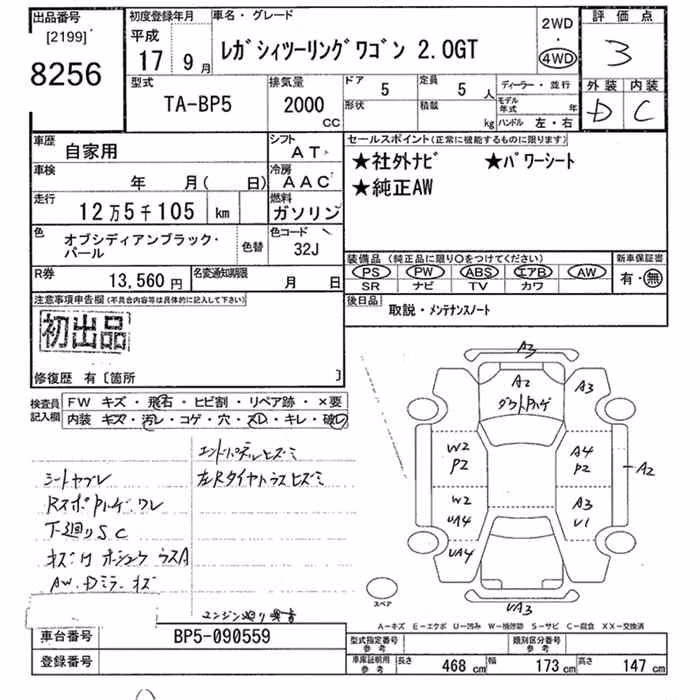 出品番号
[2199]
8256
初度登録年月
平成
17 9月
車名・グレード
レガシィツーリングワゴン 2.0GT
2WD
・
4WD
評価点
3
外装 内装
D C
型式
TA-BP5
排気量
2000
CC
ドア 5
形状
定員 5 人
積載 kg
ディーラー・並行
モデル年式 年
ハンドル 左・右
車歴
自家用
シフト
AT
車検
年 月( 日)
冷房
AAC
走行
12万5千105 km
燃料
ガソリン
色
オブシディアンブラック・
パール
色替
色コード
32J
R券
13,560円
名変通知期限
月 日
セールスポイント(正常に機能するものに限ります)
★社外ナビ ★パワーシート
★純正AW
装備品(純正品に限り○をつけてください)
PS PW ABS エアB AW
SR ナビ TV カワ
新車保証書
有・無
後日品
取説・メンテナンスノート
注意事項申告欄(不具合内容等は具体的に記入して下さい)
初出品
修復歴 有〔箇所 〕
検査員
記入欄
FW キズ・飛石・ヒビ割・リペア跡・×要
内装 キズ・汚レ・コゲ・穴・スレ・キレ・破レ
シートヤブレ
下廻りSC
AW.Dミラーキズ
A3
A2
A3
W2
P2
A4
P2
A2
W2
UA4
A3
U1
UA4
UA3
スペア
A-キズ E-エクボ U-凹み W-補修跡 S-サビ C-腐食 XX-交換済
車台番号
BP5-090559
登録番号
型式指定番号
参考
類別区分番号
参考
車庫証明用
参考
長さ 468cm 幅 173cm 高さ 147cm